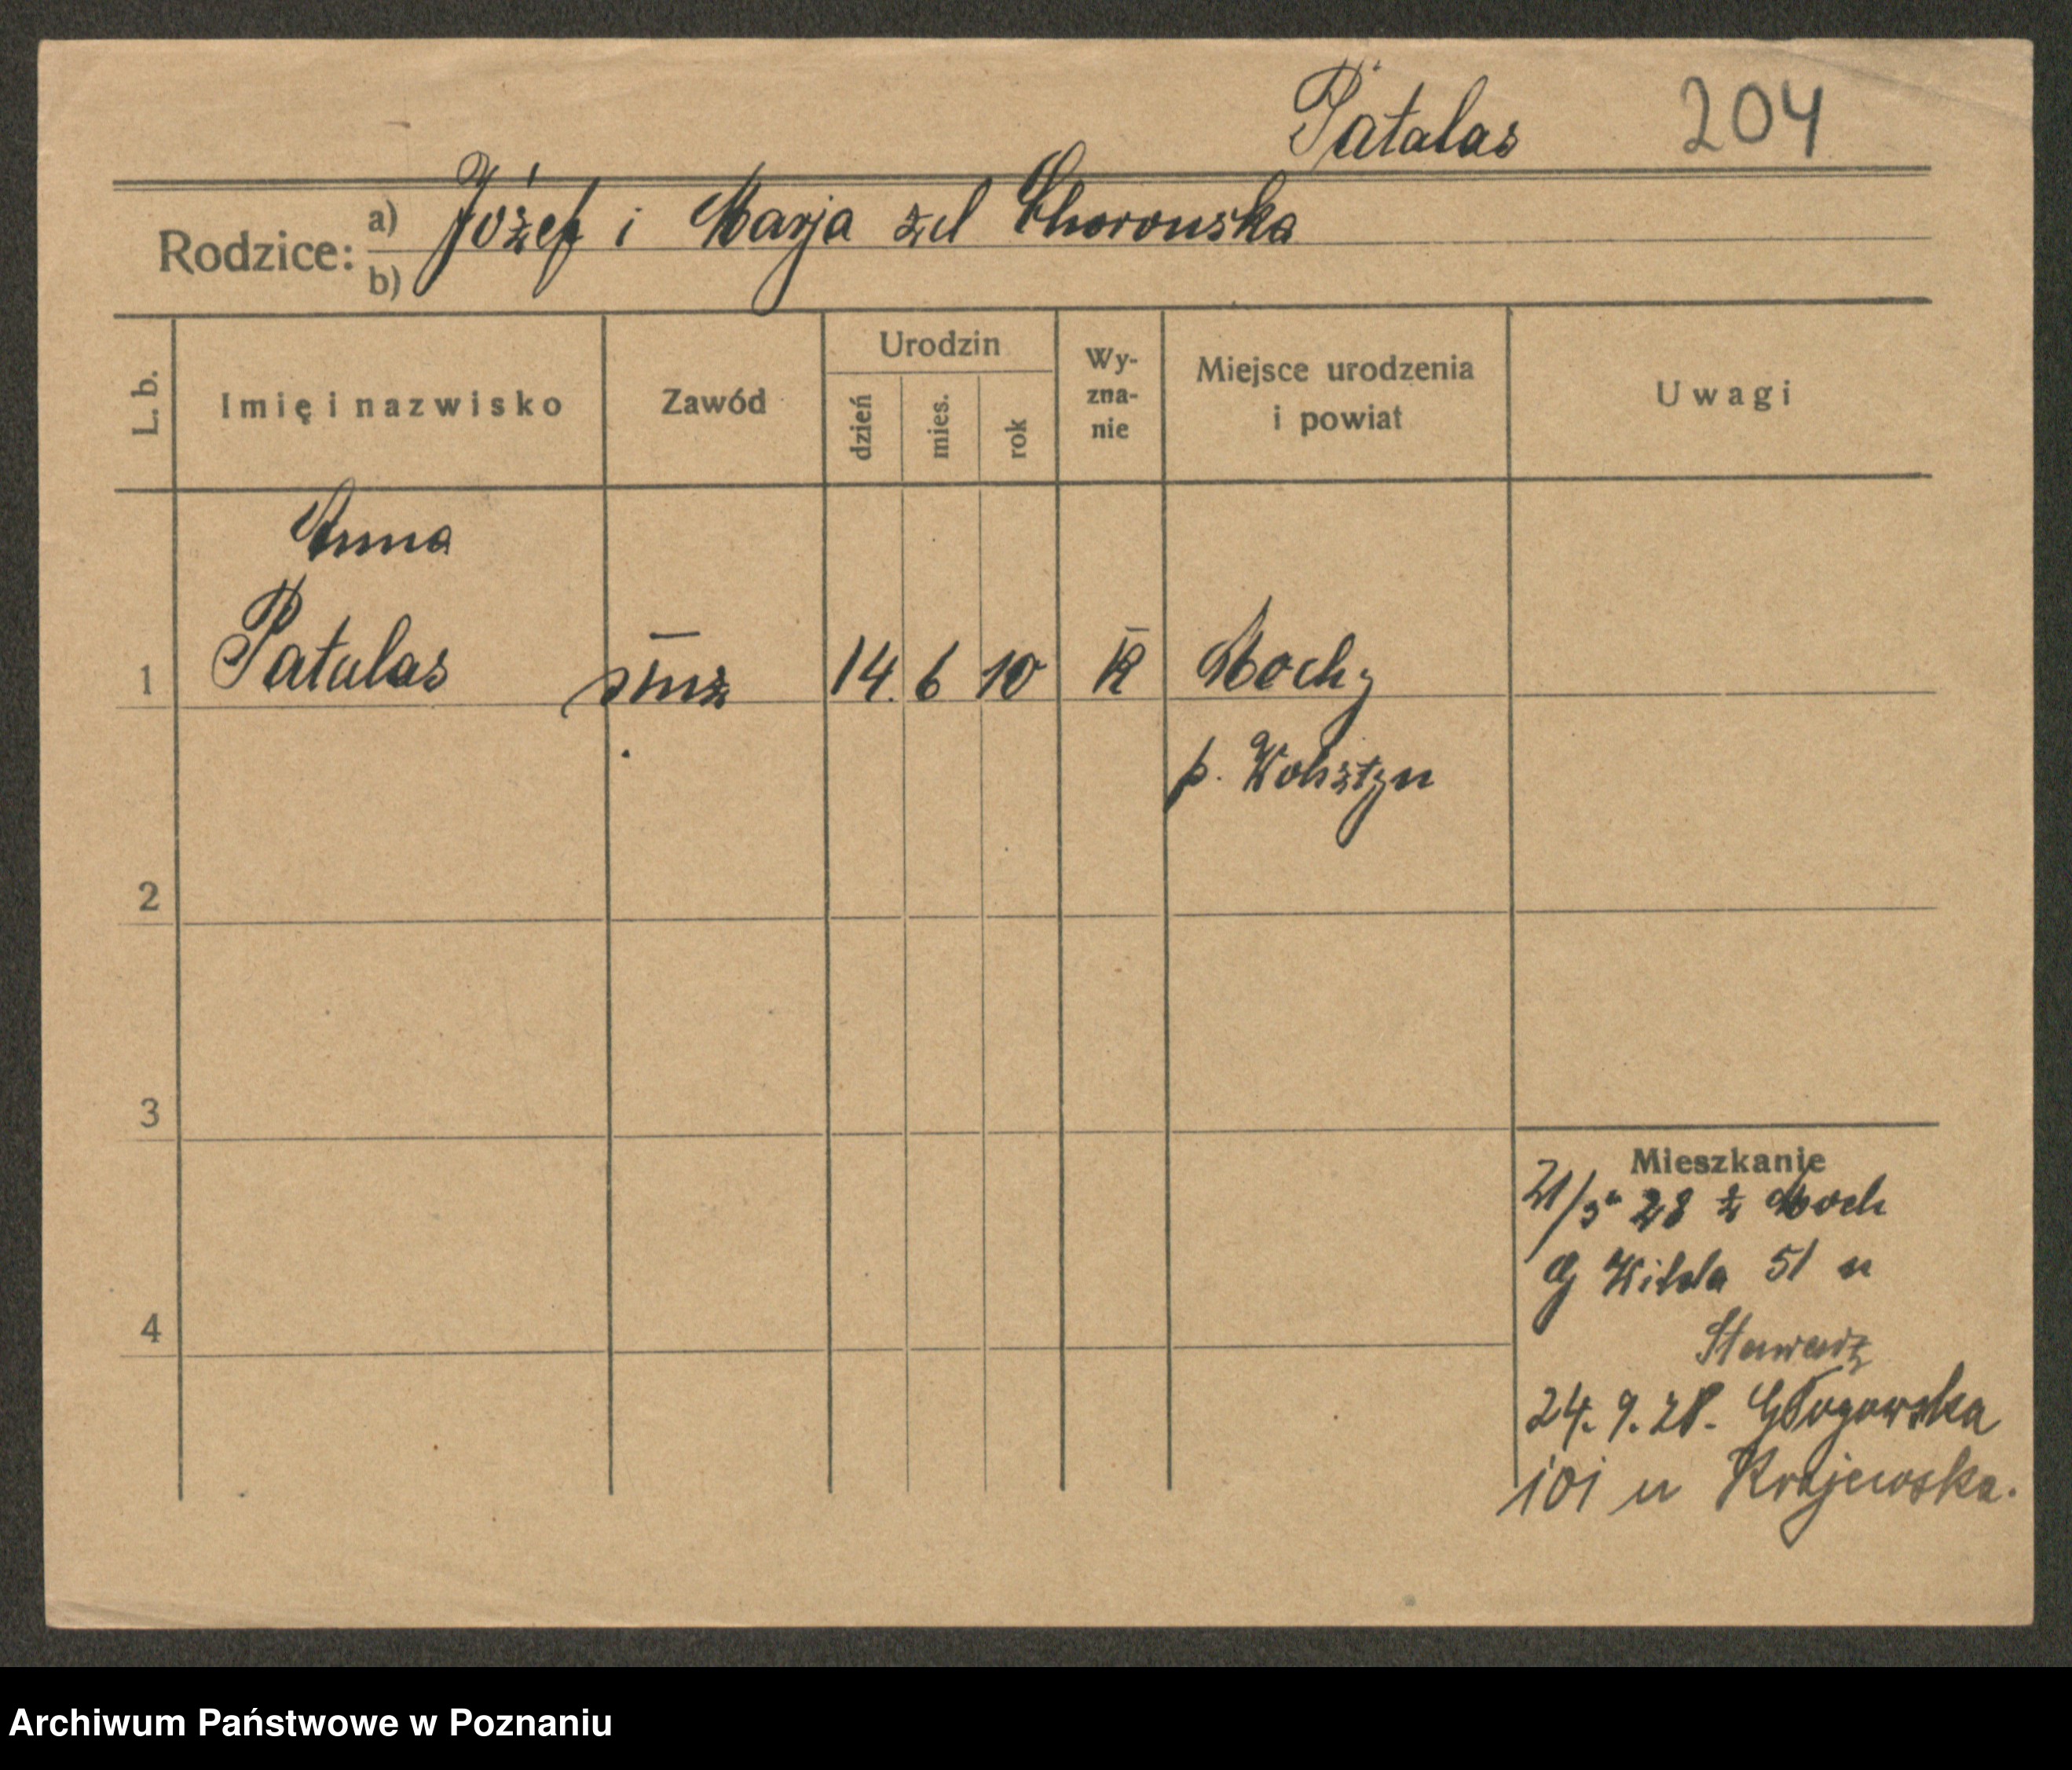 Patalas 204
Rodzice: a) Józef i Marja zd Chorońska
b)
L. b. Imię i nazwisko Zawód Urodzin dzień mies. rok Wy-zna-nie Miejsce urodzenia i powiat Uwagi
Anna
1 Patalas służ 14. 6 10 k Mochy
p. Wolsztyn
2
3
Mieszkanie
21/3 28 z Moch
G Wilda 51 u
4
24. 9. 28. Głogowska
101 u Krajewska.
Archiwum Państwowe w Poznaniu